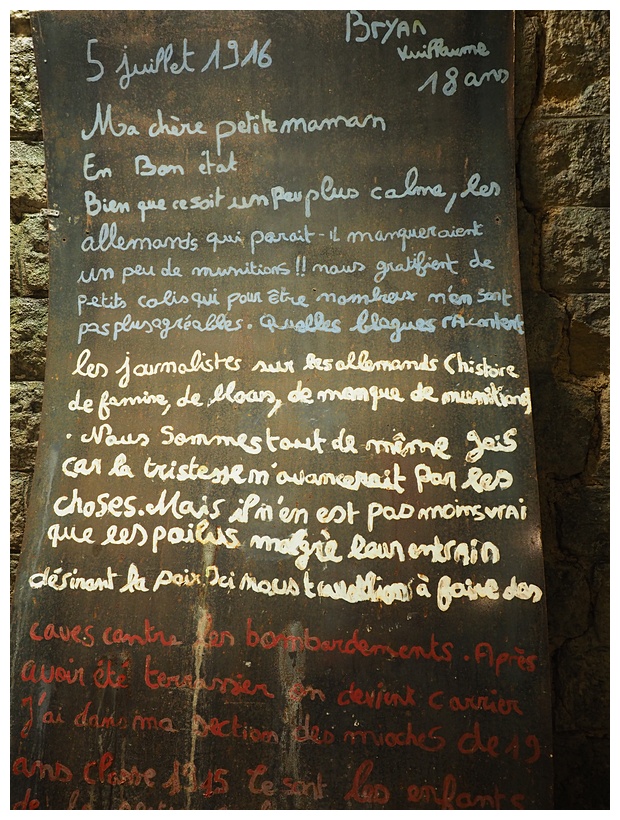 5 juillet 1916
Bryan
Guillaume
18 ans
Ma chère petite maman
En Bon état
Bien que ce soit un peu plus calme, les
allemands qui parait-il manqueraient
un peu de munitions !! nous gratifient de
petits colis qui pour être nombreux n'en sont
pas plus agréables. Quelles blagues racontent
les journalistes sur les allemands (histoire
de famine, de blocus, de manque de munitions)
. Nous Sommes tout de même gais
car la tristesse n'avancerait par les
choses. Mais il n'en est pas moins vrai
que les poilus malgré leur entrain
désirent la paix. Ici nous travaillons à faire des
caves contre les bombardements. Après
avoir été terrassier on devient carrier
J'ai dans ma section des mioches de 19
ans classe 1915 Ce sont les enfants
de la